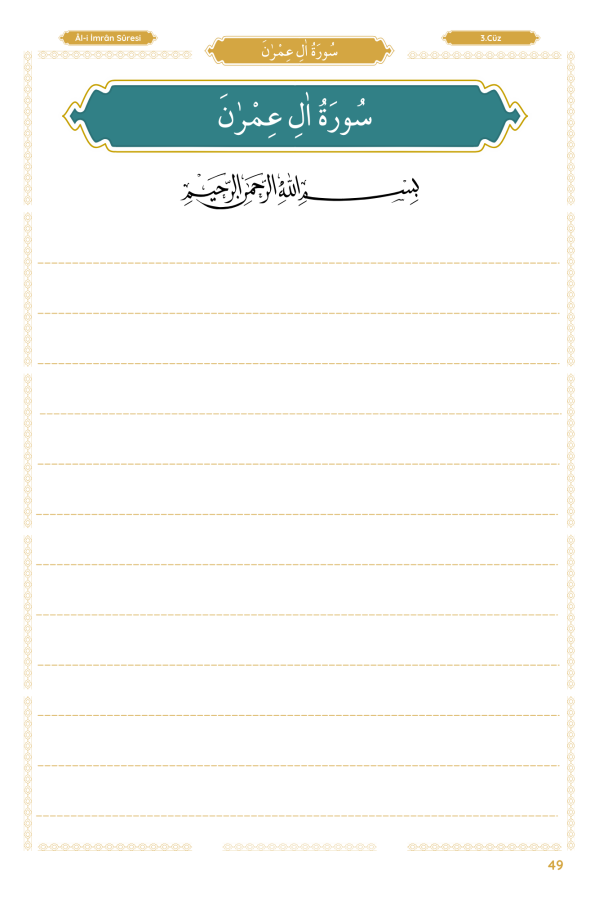 Âl-i İmrân Sûresi
سُورَةُ اٰلِ عِمْرٰنَ
3.Cüz
سُورَةُ اٰلِ عِمْرٰنَ
بِسْمِ اللّٰهِ الرَّحْمٰنِ الرَّحِيْمِ
49